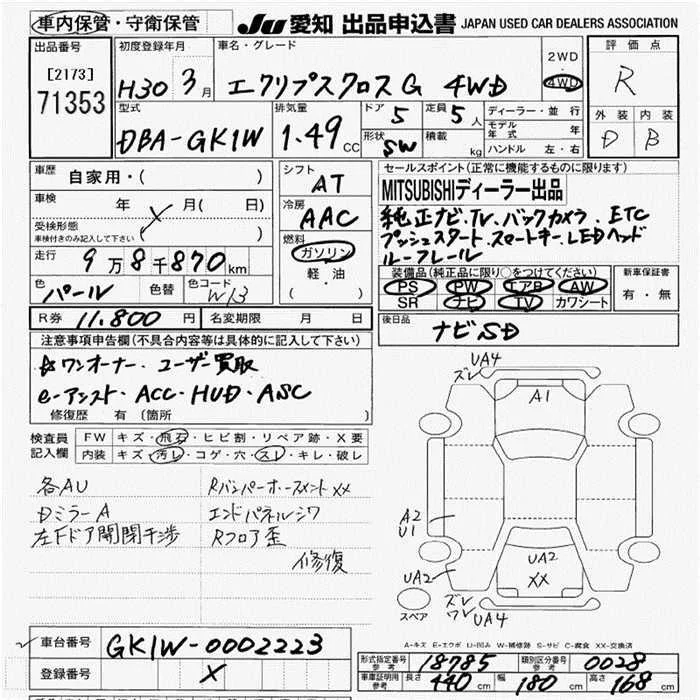 車内保管・守衛保管 JU 愛知 出品申込書 JAPAN USED CAR DEALERS ASSOCIATION
出品番号 初度登録年月 車名・グレード 2WD 評価点
[2173] 71353 H30 3月 エクリプスクロス G 4WD 4WD R
型式 排気量 ドア 5 定員 5人 ディーラー・並行 外装 内装
DBA-GK1W 1.49 CC 形状 SW 積載 kg モデル年式 年 D B
ハンドル 左・右
車歴 自家用・( ) シフト AT セールスポイント(正常に機能するものに限ります)
車検 年 月( 日) 冷房 AAC MITSUBISHIディーラー出品
受検形態 車検付きのみ記入して下さい ( ) X
純正ナビ.TV.バックカメラ.ETC
プッシュスタート.スマートキー.LEDヘッド
ルーフレール
走行 9万8千870km 燃料 ガソリン 軽・油 ( )
色 パール 色替 色コード W13
装備品(純正品に限り○をつけてください) 新車保証書
PS PW エアB AW 有・無
SR ナビ TV カワシート
R券 11.800円 名変期限 月 日 後日品 ナビSD
注意事項申告欄(不具合内容等は具体的に記入して下さい)
☆ワンオーナー.ユーザー買取
e-アシスト.ACC.HUD.ASC
修復歴 有 (箇所 )
検査員記入欄 FW キズ・飛石・ヒビ割・リペア跡・X要
内装 キズ・汚レ・コゲ・穴・スレ・キレ・破レ
各AU Rバンパーホースメント XX
Dミラー A エンドパネルシワ
左Fドア開閉干渉 Rフロア歪
修復
UA4
ズレ
A1
A2
U1
UA2
XX
UA2
ズレ
ワレ UA4
スペア
A-キズ E-エクボ U-凹み W-補修跡 S-サビ C-腐食 XX-交換済
車台番号 GK1W-0002223
登録番号 X
形式指定番号 参考 18785 類別区分番号 参考 0028
車庫証明用 参考 長さ 440cm 幅 180cm 高さ 168cm